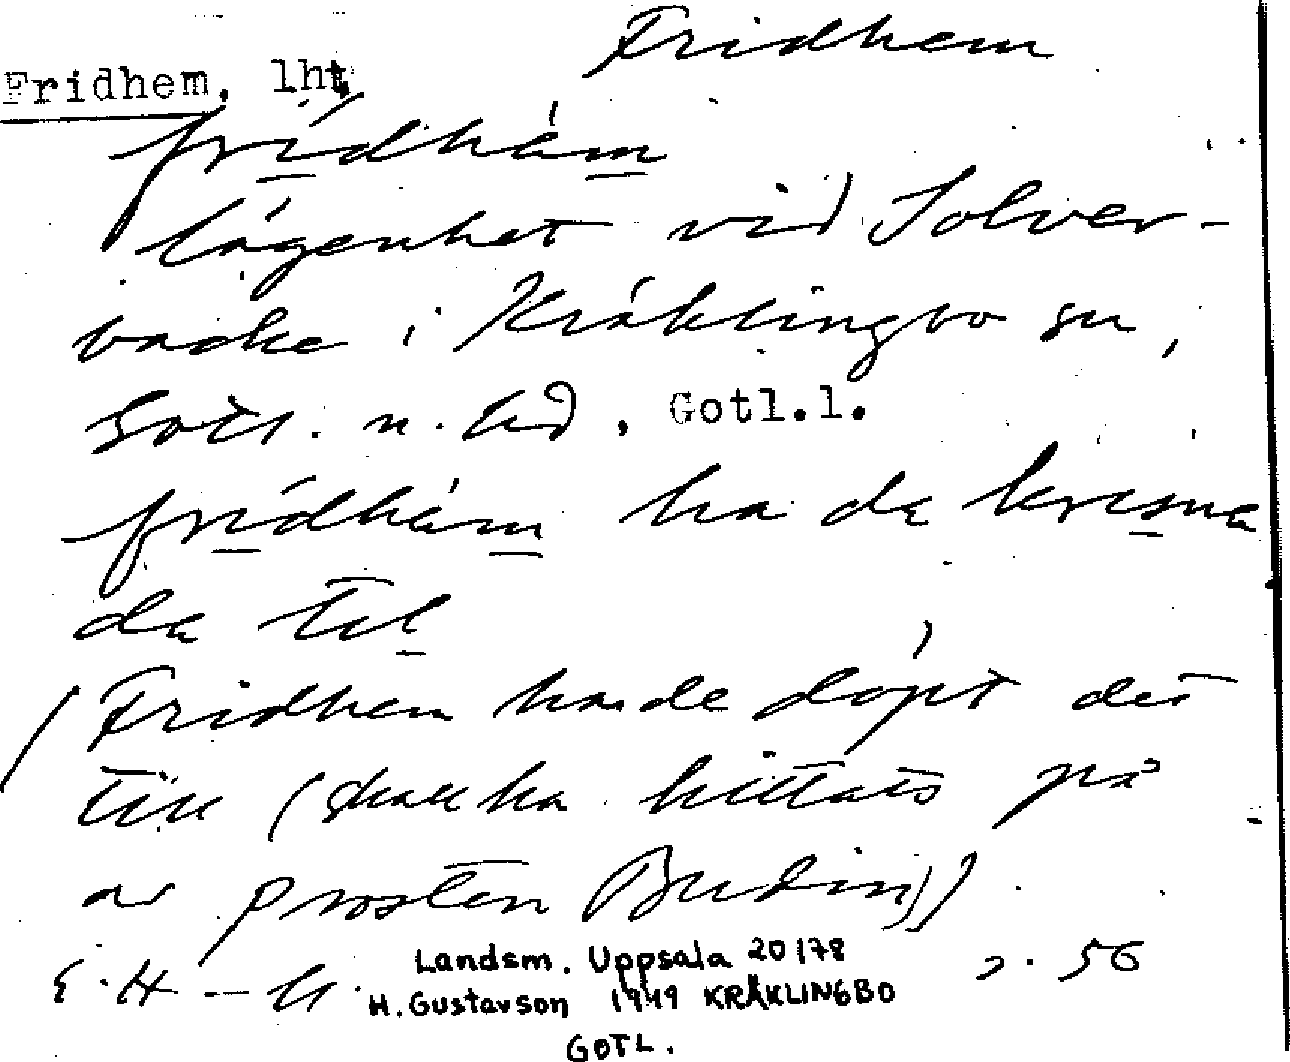 Fridhem
Fridhem, lht
frídhä̀m
lägenhet vid Solver-
backe i Kräklingbo sn,
Gotl. n. hd, Gotl.l.
frídhä̀m ha da krısna
da tıl
/Fridhem hade döpt det
till (skall ha hittats på
av prosten Budin))
Landsm. Uppsala 20178
s. 56
H. Gustavson 1949 KRÄKLINGBO
GOTL.